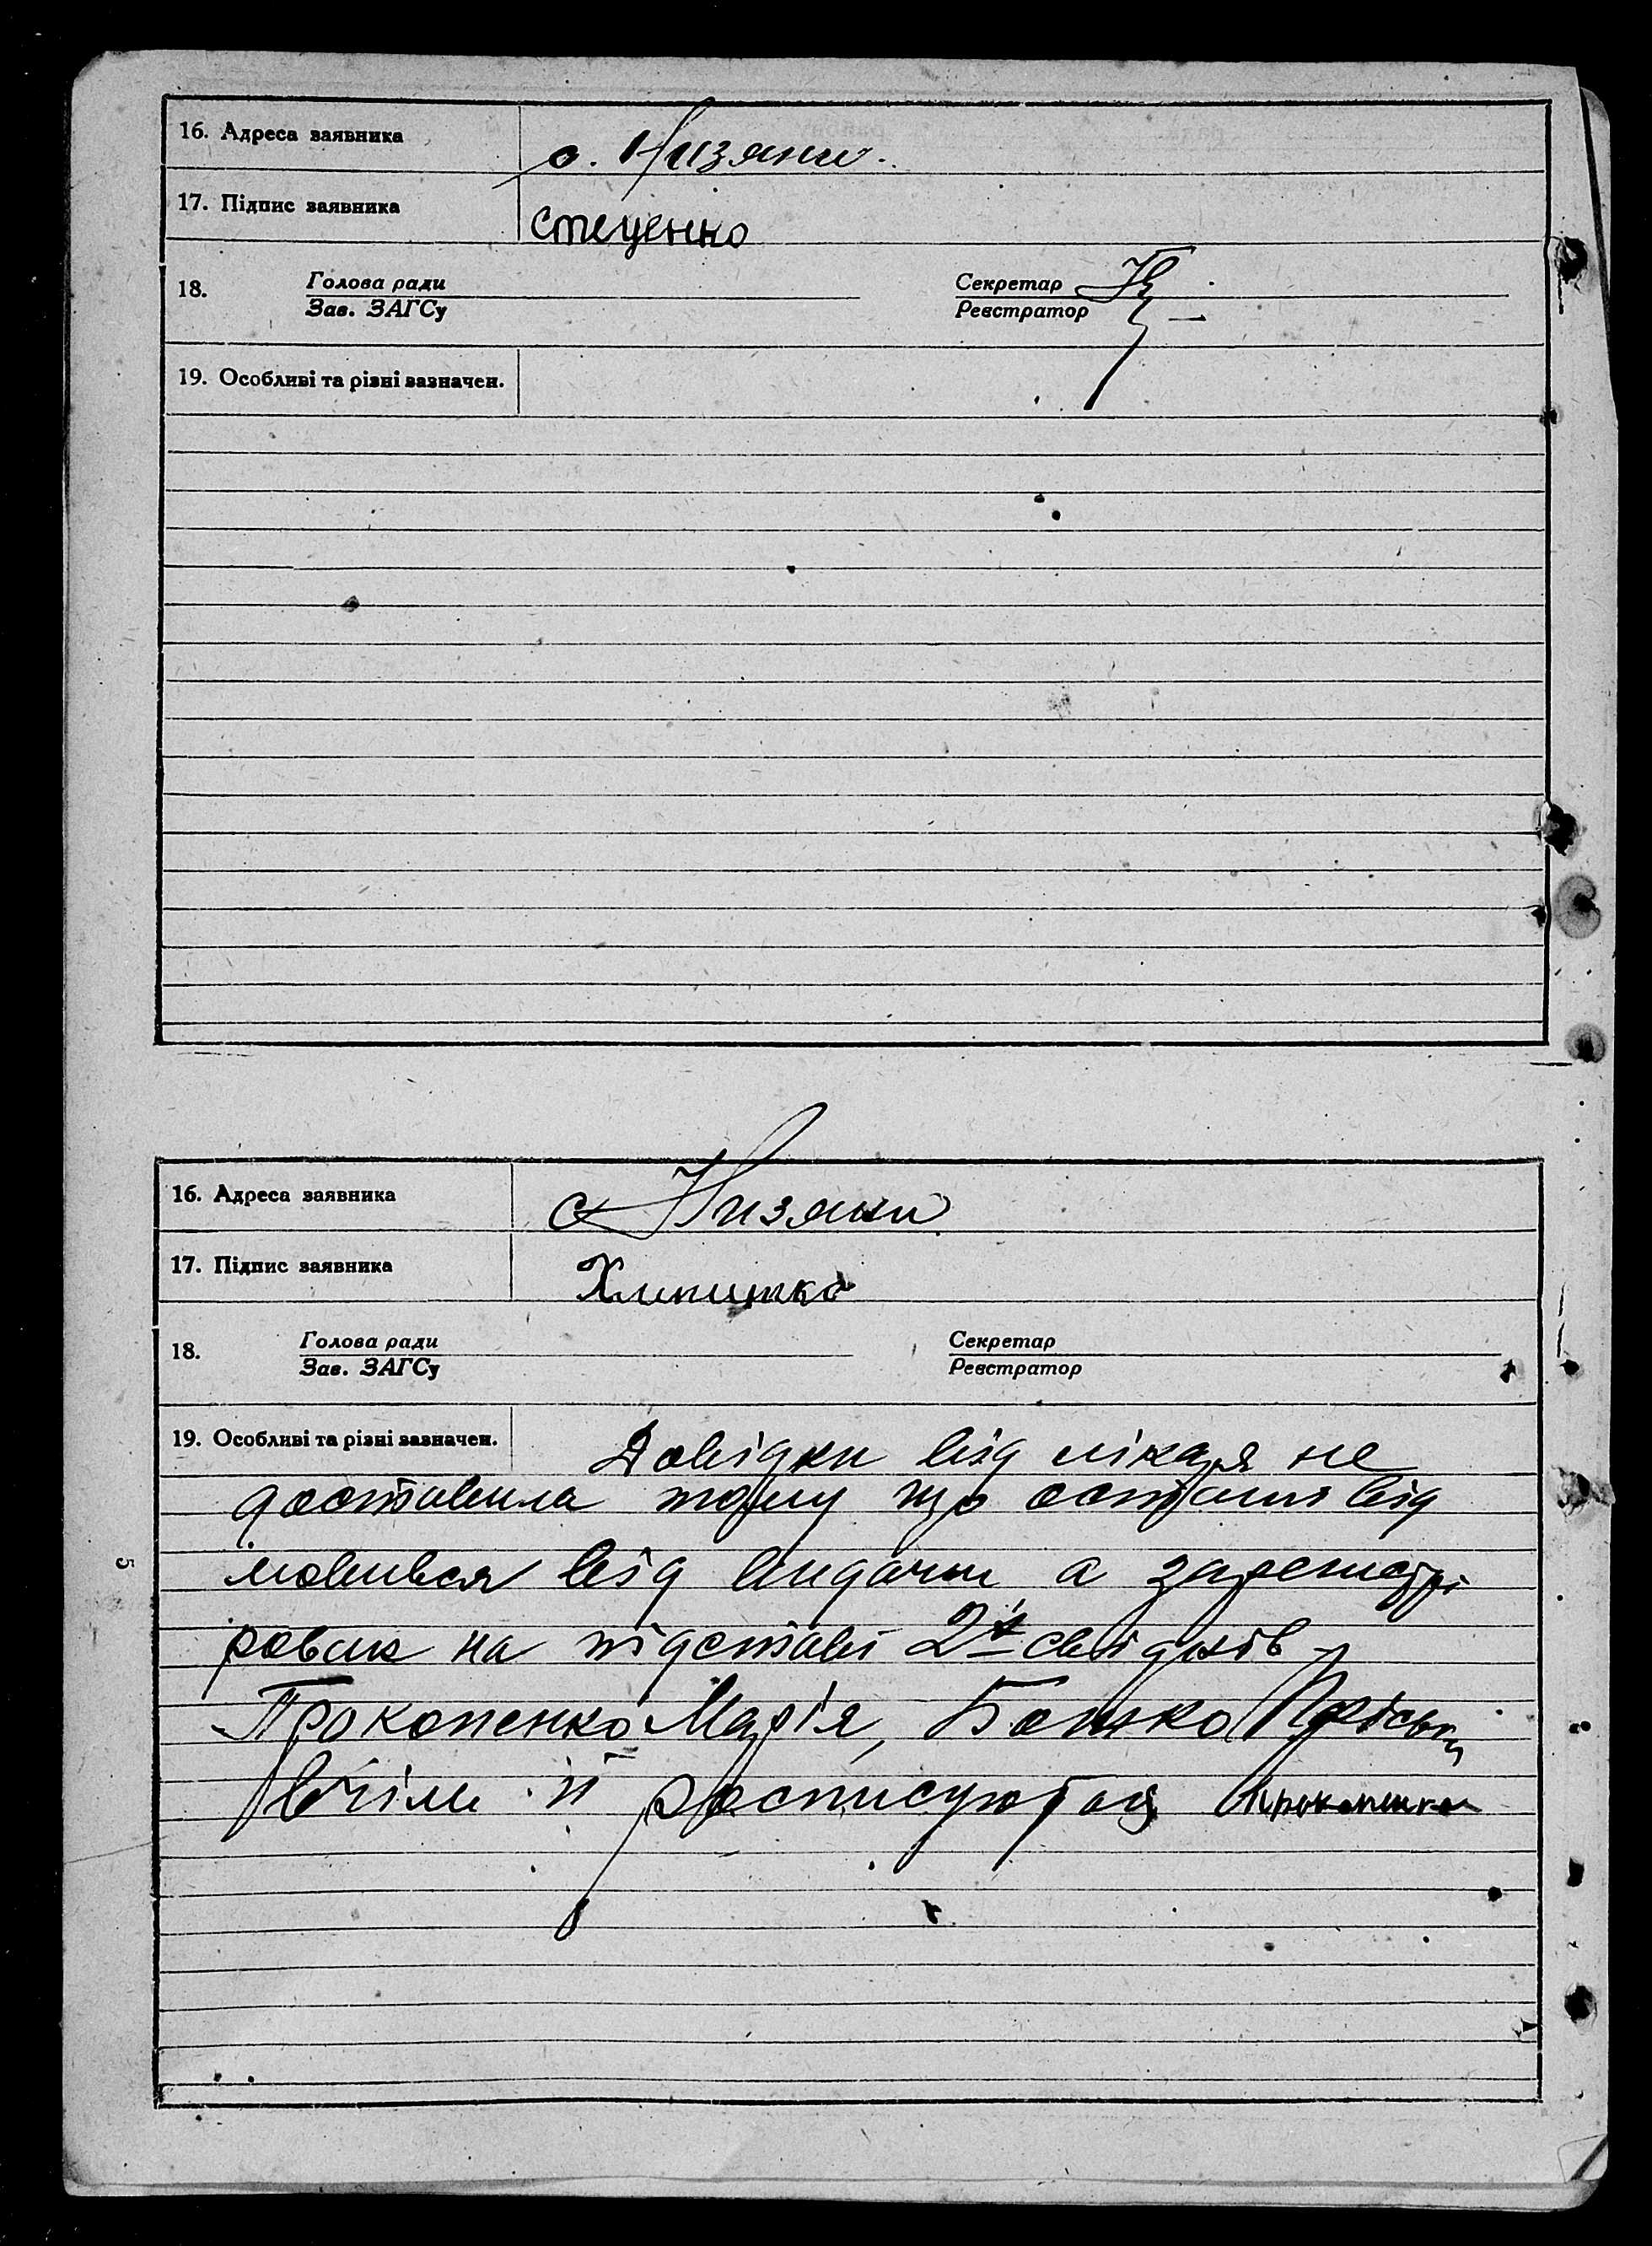 16. Адреса заявника с. Низяни.
17. Підпис заявника Стеценко
18. Голова ради Секретар
Зав. ЗАГСу Реєстратор
19. Особливі та різні зазначен.
16. Адреса заявника с. Низяни
17. Підпис заявника
18. Голова ради Секретар
Зав. ЗАГСу Реєстратор
19. Особливі та різні зазначен. Довідки від лікаря не
доставила тому що останні від
мовився від видачи а зареистрі
ровик на підставі 2х свідків
Прокопенко Марія, Божко
в чім й росписуються Прокопенко
5